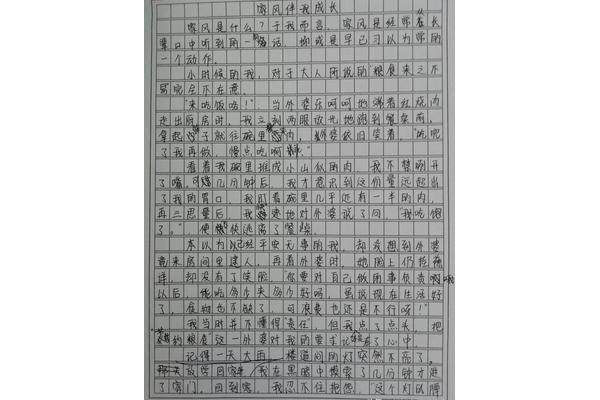 家风伴我成长
家风是什么？于我而言，家风是经常从长
辈口中听到的一句话，抑或是早已习以为常的
一个动作。
小时候的我，对于大人所说的"粮食来之不
易"完全不在意。
"来吃饭啦！"当外婆乐呵呵地端着红烧肉
走出厨房时，我立刻两眼放光地跑到餐桌前，
拿起筷子就往碗里夹肉，外婆依旧笑着，"吃完
了我再做，慢点吃啊。"
看着我碗里堆成小山似的肉，我不禁咧开
了嘴。可几分钟后，我才意识到这份量远超出
了我的胃口。我盯着碗里几乎还有一半的肉，
再三思量后，我快速地对外婆说了句，"我吃饱
了。"，便快快逃离了餐桌。
本以为已经平安无事的我，却没想到外婆
竟来房间里逮人，再看着外婆时，她脸上仍
样，却没有了笑脸，"你要对自己做的事负责啊，
以后，能吃多少夹多少好吗，虽说现在生活好
了，食物也不缺了，可浪费也还是不行呀！"
我当时并不懂得"责任"，但我点了点头，把
"节约粮食"这一外婆对我的要求记在了心中。
记得一天大雨，楼道间的灯突然不亮了，
放学回家，我在黑暗中摸索了几分钟才进
了家门，回到家，我忍不住抱怨，"这个灯